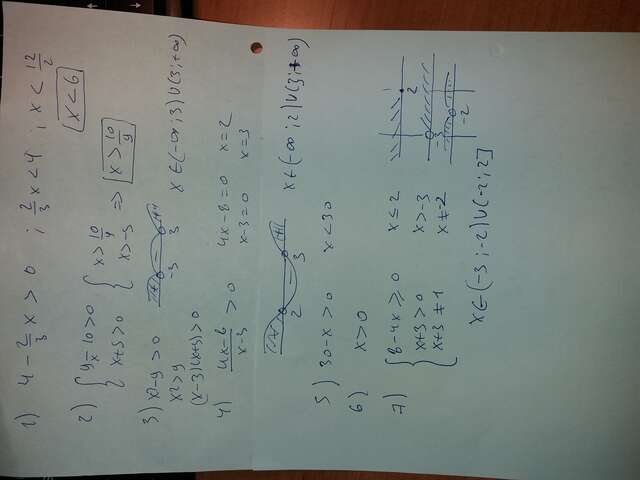 1) 4 - 2/3 x > 0 ; 2/3 x < 4 , x < 12/2
x < 6
2) { 9x - 10 > 0 { x > 10/9 => x > 10/9
x + 5 > 0 x > -5
3) x² - 9 > 0 + - + -3 3
x² > 9 x ∈ (-∞ ; 3) ∪ (3 ; +∞)
(x-3)(x+3) > 0
4) 4x-8 / x-3 > 0 4x - 8 = 0 x = 2
x - 3 = 0 x = 3
+ - + 2 3 x ∈ (-∞ ; 2) ∪ (3 ; +∞)
5) 30 - x > 0 x < 30
6) x > 0
7) { 8 - 4x ⩾ 0 x ≤ 2 2
x + 3 > 0 x > -3 -3
x + 3 ≠ 1 x ≠ -2 -2
x ∈ (-3 ; -2) ∪ (-2 ; 2]